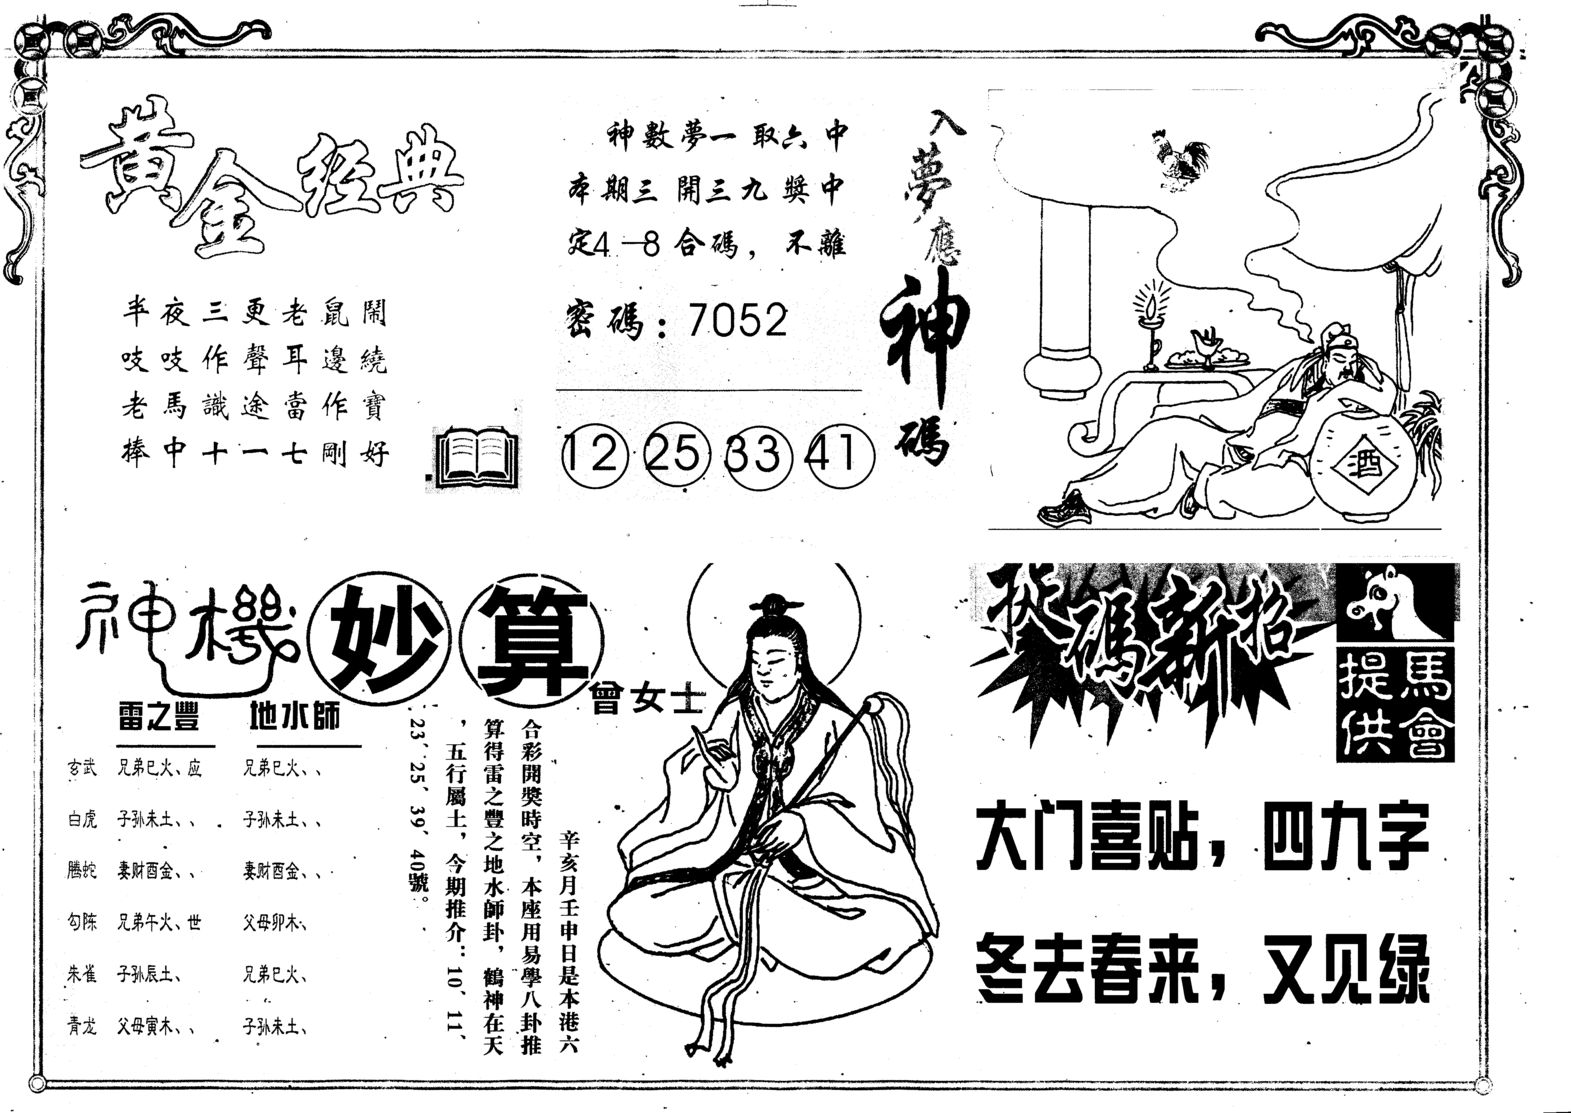 黃金經典
半夜三更老鼠鬧
吱吱作聲耳邊繞
老馬識途當作寶
棒中十一七剛好
神數夢一取六中
本期三開三九獎中
定4一8合碼，不離
密碼：7052
12 25 33 41
入夢應神碼
酒
神機妙算
曾女士
雷之豐 地水師
玄武 兄弟巳火、应 兄弟巳火、、
白虎 子孙未土、、 子孙未土、、
腾蛇 妻财酉金、、 妻财酉金、、
勾陈 兄弟午火、世 父母卯木、
朱雀 子孙辰土、 兄弟巳火、
青龙 父母寅木、、 子孙未土、
辛亥月壬申日是本港六
合彩開獎時空，本座用易學八卦推
算得雷之豐之地水師卦，鶴神在天
，五行屬土，今期推介：10、11、
23、25、39、40號。
碼新招
馬會
提供
大门喜贴，四九字
冬去春来，又见绿